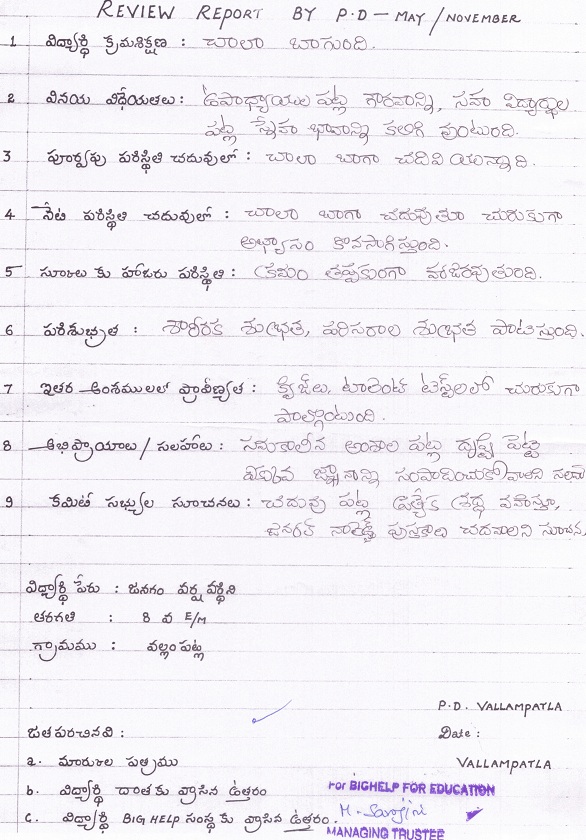 REVIEW REPORT BY P.D – MAY / NOVEMBER
1 విద్యార్థి క్రమశిక్షణ : చాలా బాగుంది.
2 వినయ విధేయతలు : ఉపాధ్యాయుల పట్ల గౌరవాన్ని, సహా విద్యార్థుల
పట్ల స్నేహ భావాన్ని కలిగి వుంటుంది.
3 పూర్వపు పరిస్థితి చదువులో : చాలా బాగా చదివి యున్నాది.
4 నేటి పరిస్థితి చదువులో : చాలా బాగా చదువుతూ చురుకుగా
అభ్యాసం కొనసాగిస్తుంది.
5 స్కూలు కు హాజరు పరిస్థితి : క్రమం తప్పకుండా హాజరవుతుంది.
6 పరిశుభ్రత : శారీరక శుభ్రత, పరిసరాల శుభ్రత పాటిస్తుంది.
7 ఇతర అంశములలో ప్రావీణ్యత : క్విజ్‌లు, టాలెంట్ టెస్ట్‌లలో చురుకుగా
పాల్గొంటుంది.
8 అభిప్రాయాలు / సలహాలు : సమకాలీన అంశాల పట్ల దృష్టి పెట్టి
ఎక్కువ జ్ఞానాన్ని సంపాదించుకోవాలని సలహా
9 కమిటీ సభ్యుల సూచనలు : చదువు పట్ల ప్రత్యేక శ్రద్ధ వహిస్తూ,
జనరల్ నాలెడ్జ్ పుస్తకాలు చదవాలని సూచన.
విద్యార్థి పేరు : జనగం వర్ష వర్ధిని
తరగతి : 8 వ E/M
గ్రామము : వల్లంపట్ల
P.D. VALLAMPATLA
జతపరచినవి : Date :
a. మార్కుల పత్రము VALLAMPATLA
b. విద్యార్థి దాతకు వ్రాసిన ఉత్తరం For BIGHELP FOR EDUCATION
c. విద్యార్థి BIG HELP సంస్థ కు వ్రాసిన ఉత్తరం.
MANAGING TRUSTEE